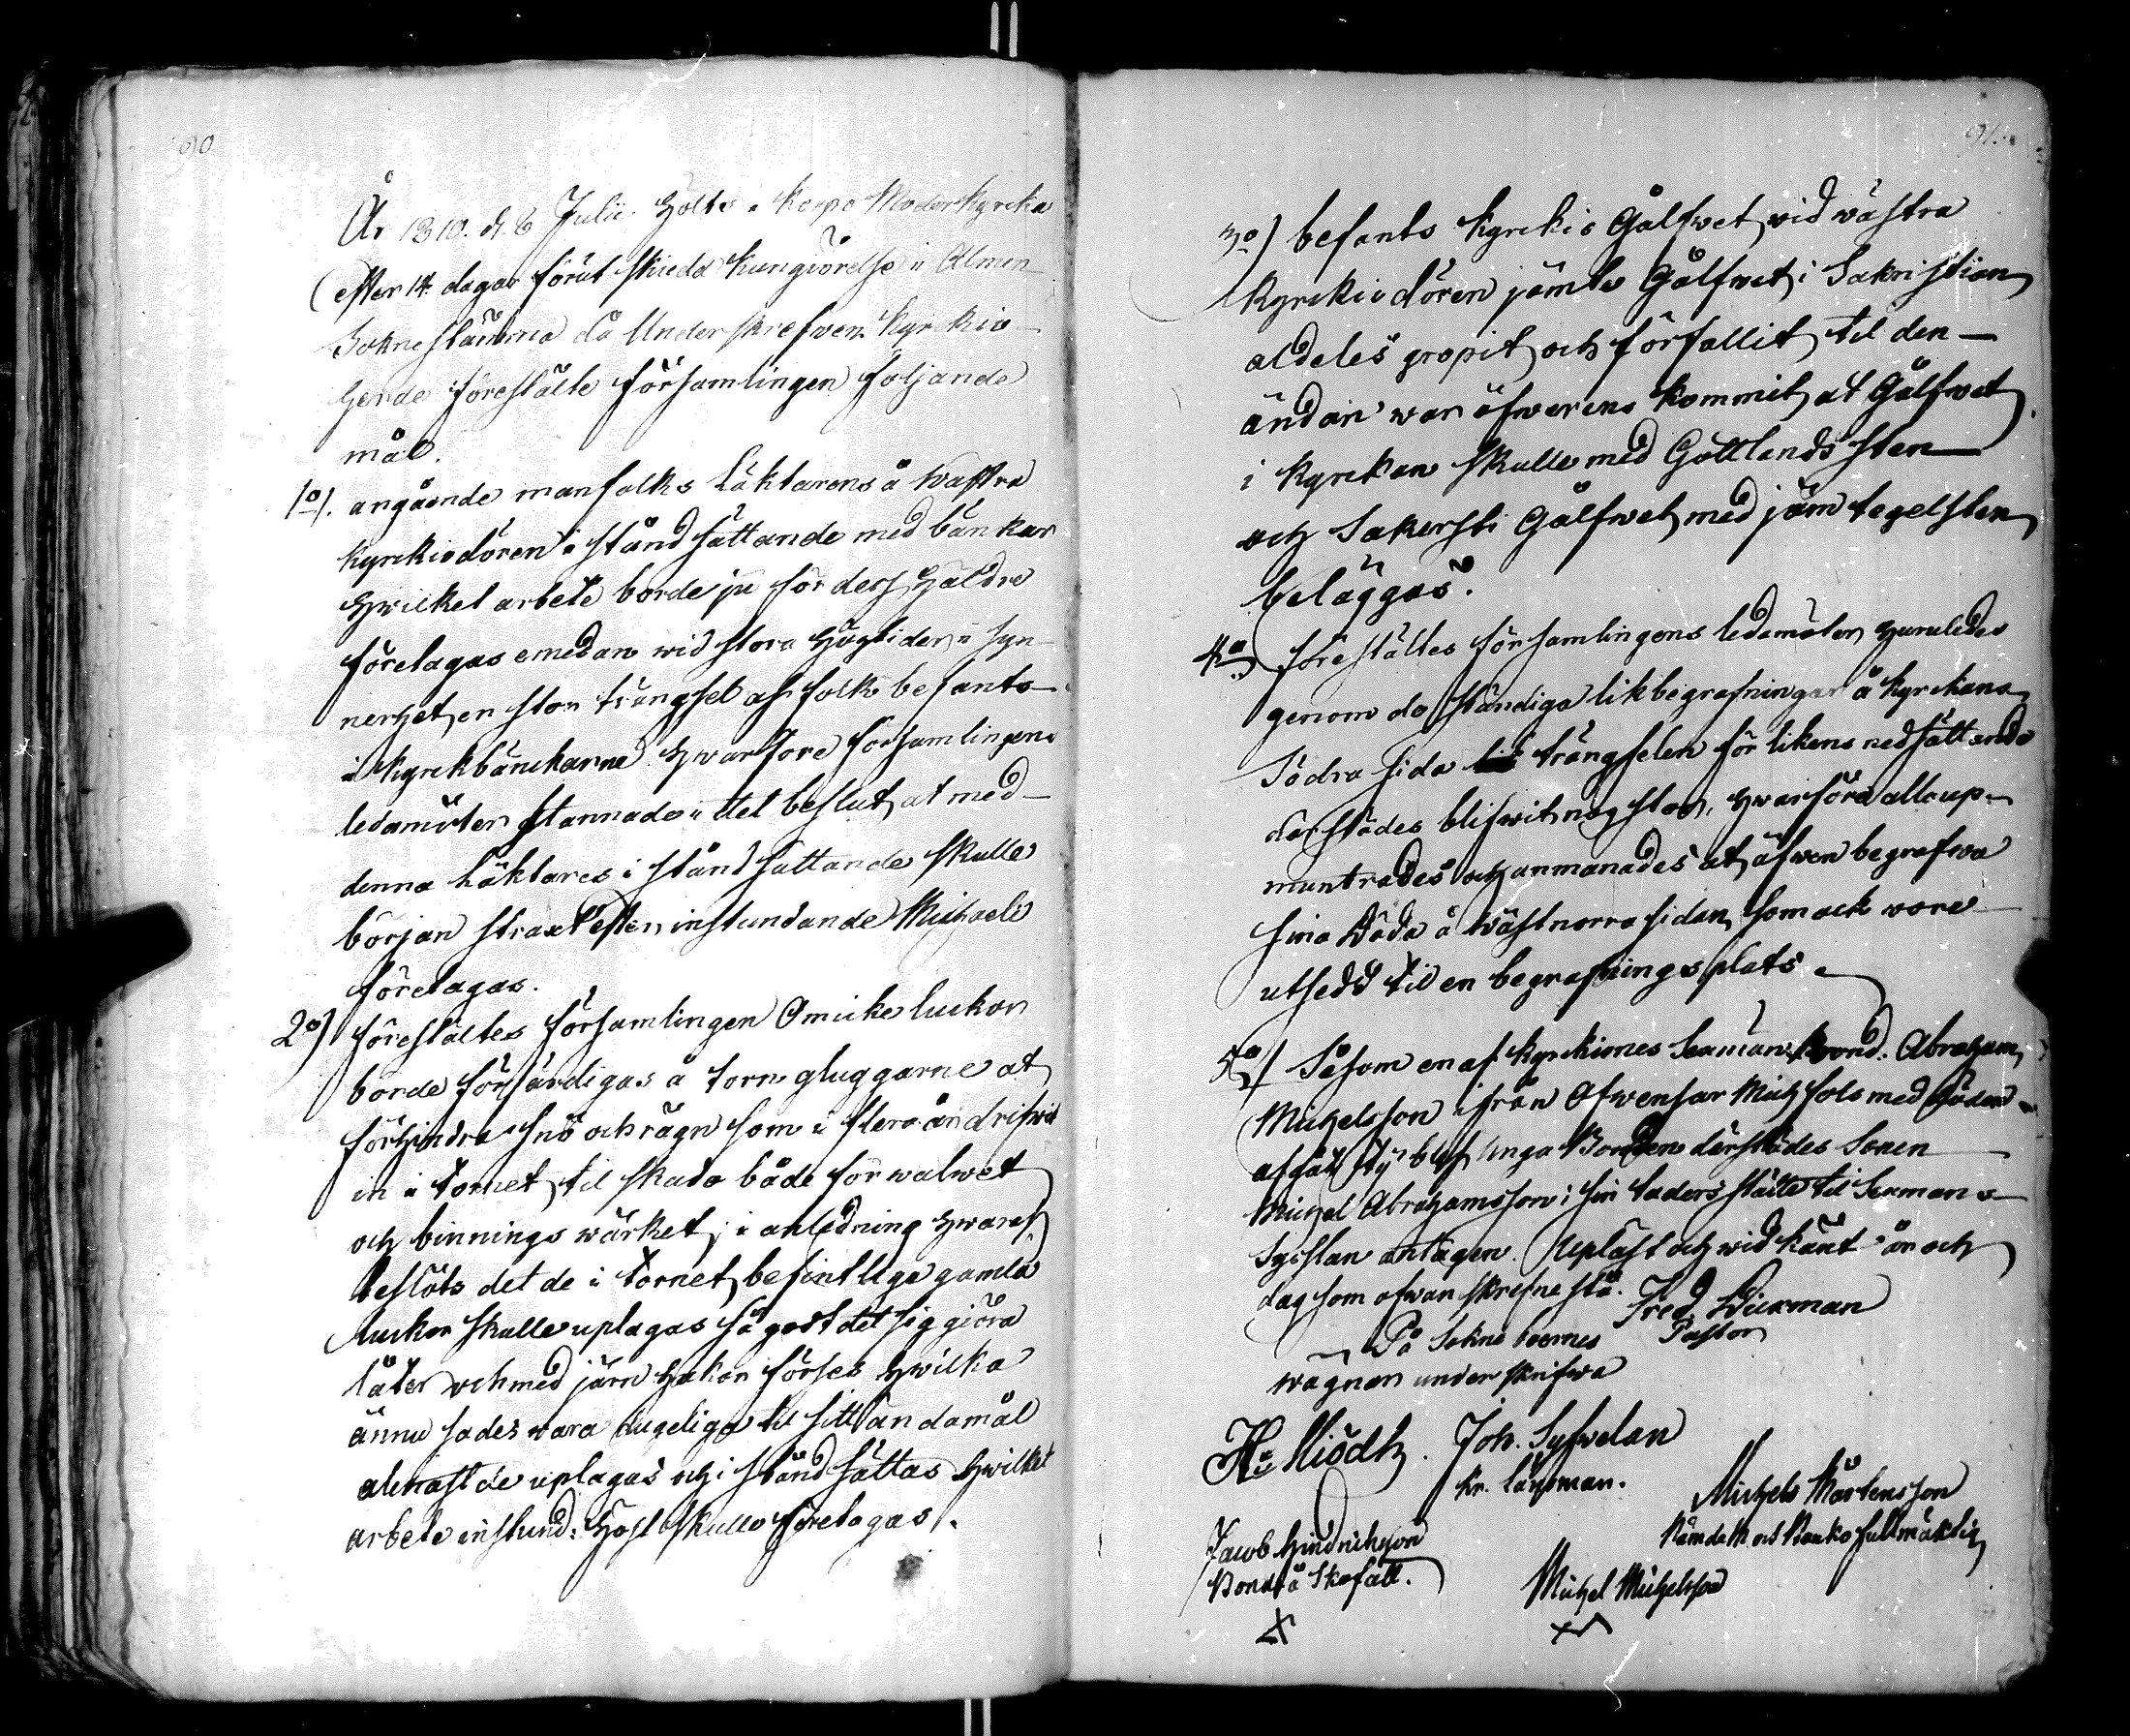 90
År 1810. d. 8 Julii. Holts i Korpo Moderkyrcka
efter 14. dagar förut skiedd kungiörelse i Almen
Sokne stämma då Underskrefwen Kyrckio
herde förestälte församlingen följande
mål.
1o). angående manfolks Läktarens å wästra
kyrckiodören i stånd sättande med bänkar
hwilket arbete borde ju för dess häldre
företagas emedan wid stora högtider i syn-
nerhet en stor trängsel af folk befants
i kyrckbänckarne hwarföre församlingens
ledamöter stannade i det beslut at med
denna Läktares i stånd sättande skulle
början straxt efter instundande Michaeli
företagas.
2o) föreställtes församlingen Om icke luckor
borde förfärdigas å torn gluggarne at
förhindra snö och rägn som i flera år drifwit
in i tornet til skada både för walwet
och binnings wärket; i anledning hwaraf
beslöts det de i tornet befintlige gamla
luckor skulle uplagas så godt det sig giöra
låter och med järn hakar förses hwilka
ännu sades wara dugeliga til sitt ändamål
allenast de uplagas och i stånd sättas hwilket
arbete instund: Höst skulle företagas.
91.
3o) befants kyrckio Gålfwet wid wästra
kyrckiodören jämte Gålfwet i Sakristian
aldeles gropit och förfallit til den
ändan war öfwerens kommit at Gålfwet
i Kyrckan skulle med Gottlands sten
och Sakersti Gålfwet med jäm tegelsten
beläggas.
4o) föreställtes församlingens ledamöter huruledes
genom de ständiga likbegrafningar å kyrckans
Södra sida trängselen för likens nedsättande
därstädes blifwit nog stor, hwarföre alla up-
muntrades och anmanades at äfwen begrafwa
sina döda å wäst norra sidan som ock wore
utsedd til en begrafnings plats.
5o) Såsom en af kyrckiones Sexmän Bond. Abraham
Michelsson ifrån Ofwensar med döden
afgått blef unga Bonden därstädes Sonen
Michel Abrahamsson i sin faders ställe til Sexmans
Sysslan antagen. Upläst och wid känt år och
dag som ofwan skrefne stå. Fred. Wicxman
Pastor
På Sokne boernes
wägnar underskrifwa
Joh. Sylwelan
Kr. länsman.
Michels Mårtensson
Nämdeman och Banko fullmäktig
Jacob Hindrichsson
Bonde å Skafält.
X
Michel Michelsson